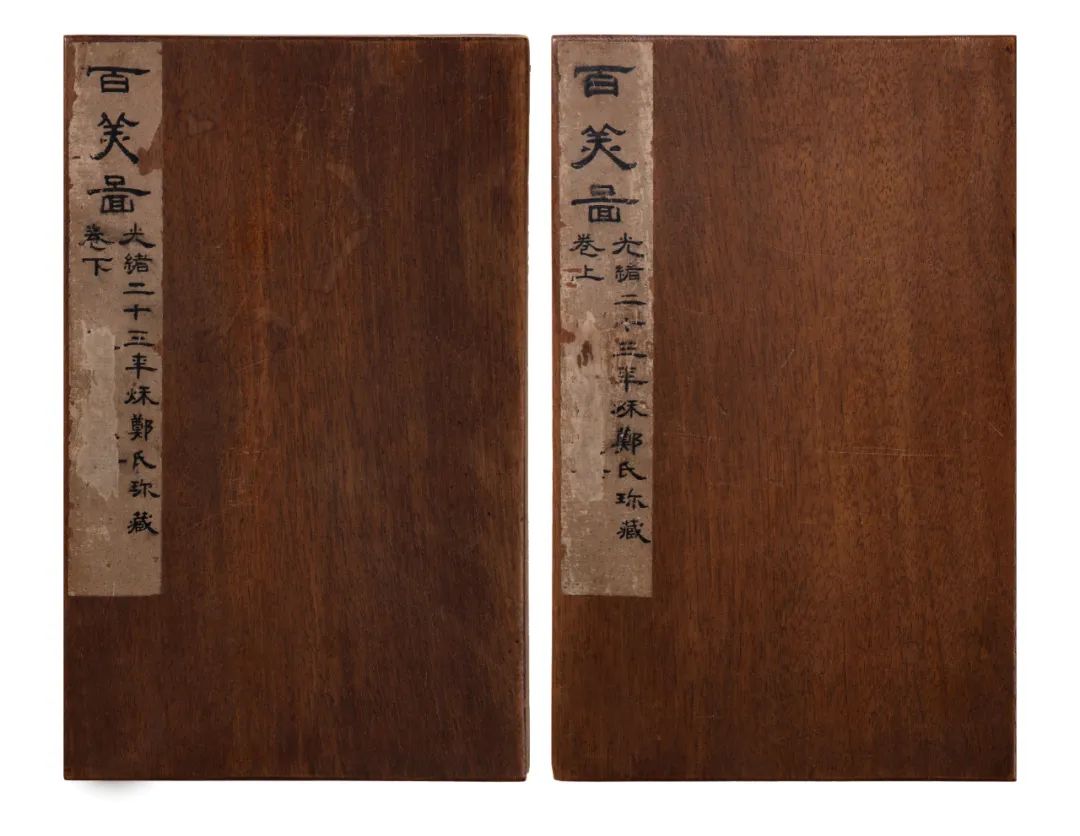 百美圖
光緒二十三年秌鄭氏珎藏
卷上
百美圖
光緒二十三年秌鄭氏珎藏
卷下